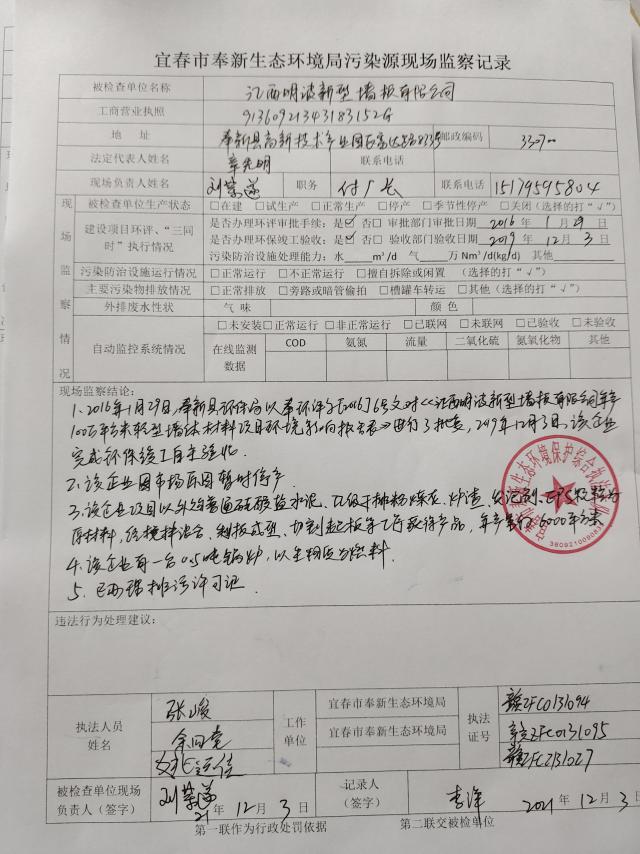 宜春市奉新生态环境局污染源现场监察记录
被检查单位名称 江西明波新型墙板有限公司
工商营业执照 91360921343183152G
地 址 奉新县高新技术产业园区 邮政编码 330700
法定代表人姓名 章光明 联系电话
现场负责人姓名 刘荣遂 职务 付厂长 联系电话 15179595804
现场监察情况
被检查单位生产状态 □在建 □试生产 □正常生产 □停产 □季节性停产 □关闭(选择的打“√”)
建设项目环评、“三同时”执行情况
是否办理环评审批手续：是☑ 否□ 审批部门审批日期 2016 年 1 月 29 日
是否办理环保竣工验收：是☑ 否□ 验收部门验收日期 2019 年 12 月 3 日
污染防治设施处理能力：水 m³/d 气 万Nm³/d(kg/d) 其他
污染防治设施运行情况 □正常运行 □不正常运行 □擅自拆除或闲置 (选择的打“√”)
主要污染物排放情况 □正常排放 □旁路或暗管偷拍 □槽罐车转运 □其他(选择的打“√”)
外排废水性状 气 味 颜 色
自动监控系统情况 □未安装 □正常运行 □非正常运行 □已联网 □未联网 □已验收 □未验收
在线监测数据 COD 氨氮 流量 二氧化硫 氮氧化物 其他
现场监察结论：
1、2016年1月29日，奉新县环保局以奉环评字[2016]6号文对《江西明波新型墙板有限公司年产
100万平方米轻型墙体材料项目环境影响报告表》进行了批复，2019年12月3日，该企业
完成环保竣工自主验收.
2、该企业因市场原因暂时停产.
3、该企业项目以外购普通硅酸盐水泥、 粉煤灰、炉渣、发泡剂、EPS颗粒为
原材料，经搅拌混合、制板成型、切割起板等工序获得产品，年产量约6000平方米
4、该企业有一台0.5吨锅炉，以生物质为燃料.
5、已办理排污许可证.
3609210090
违法行为处理建议：
执法人员姓名 张峻 工作单位 宜春市奉新生态环境局 执法证号 赣ZFC0131094
余国亮 宜春市奉新生态环境局 赣ZFC0131095
赣ZFC2131027
被检查单位现场负责人(签字) 刘荣遂 21 年 12 月 3 日 记录人(签字) 李洋 2021 年 12 月 3 日
第一联作为行政处罚依据 第二联交被检单位